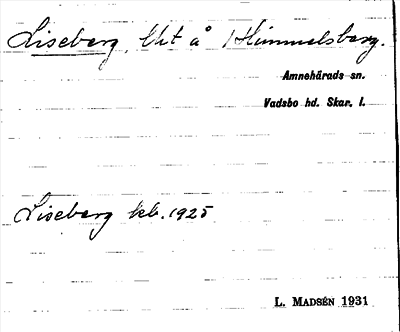 Liseberg, Utt å 1 Himmelsberg.
Amnehärads sn.
Vadsbo hd. Skar. l.
Liseberg kb. 1925
L. MADSÉN 1931